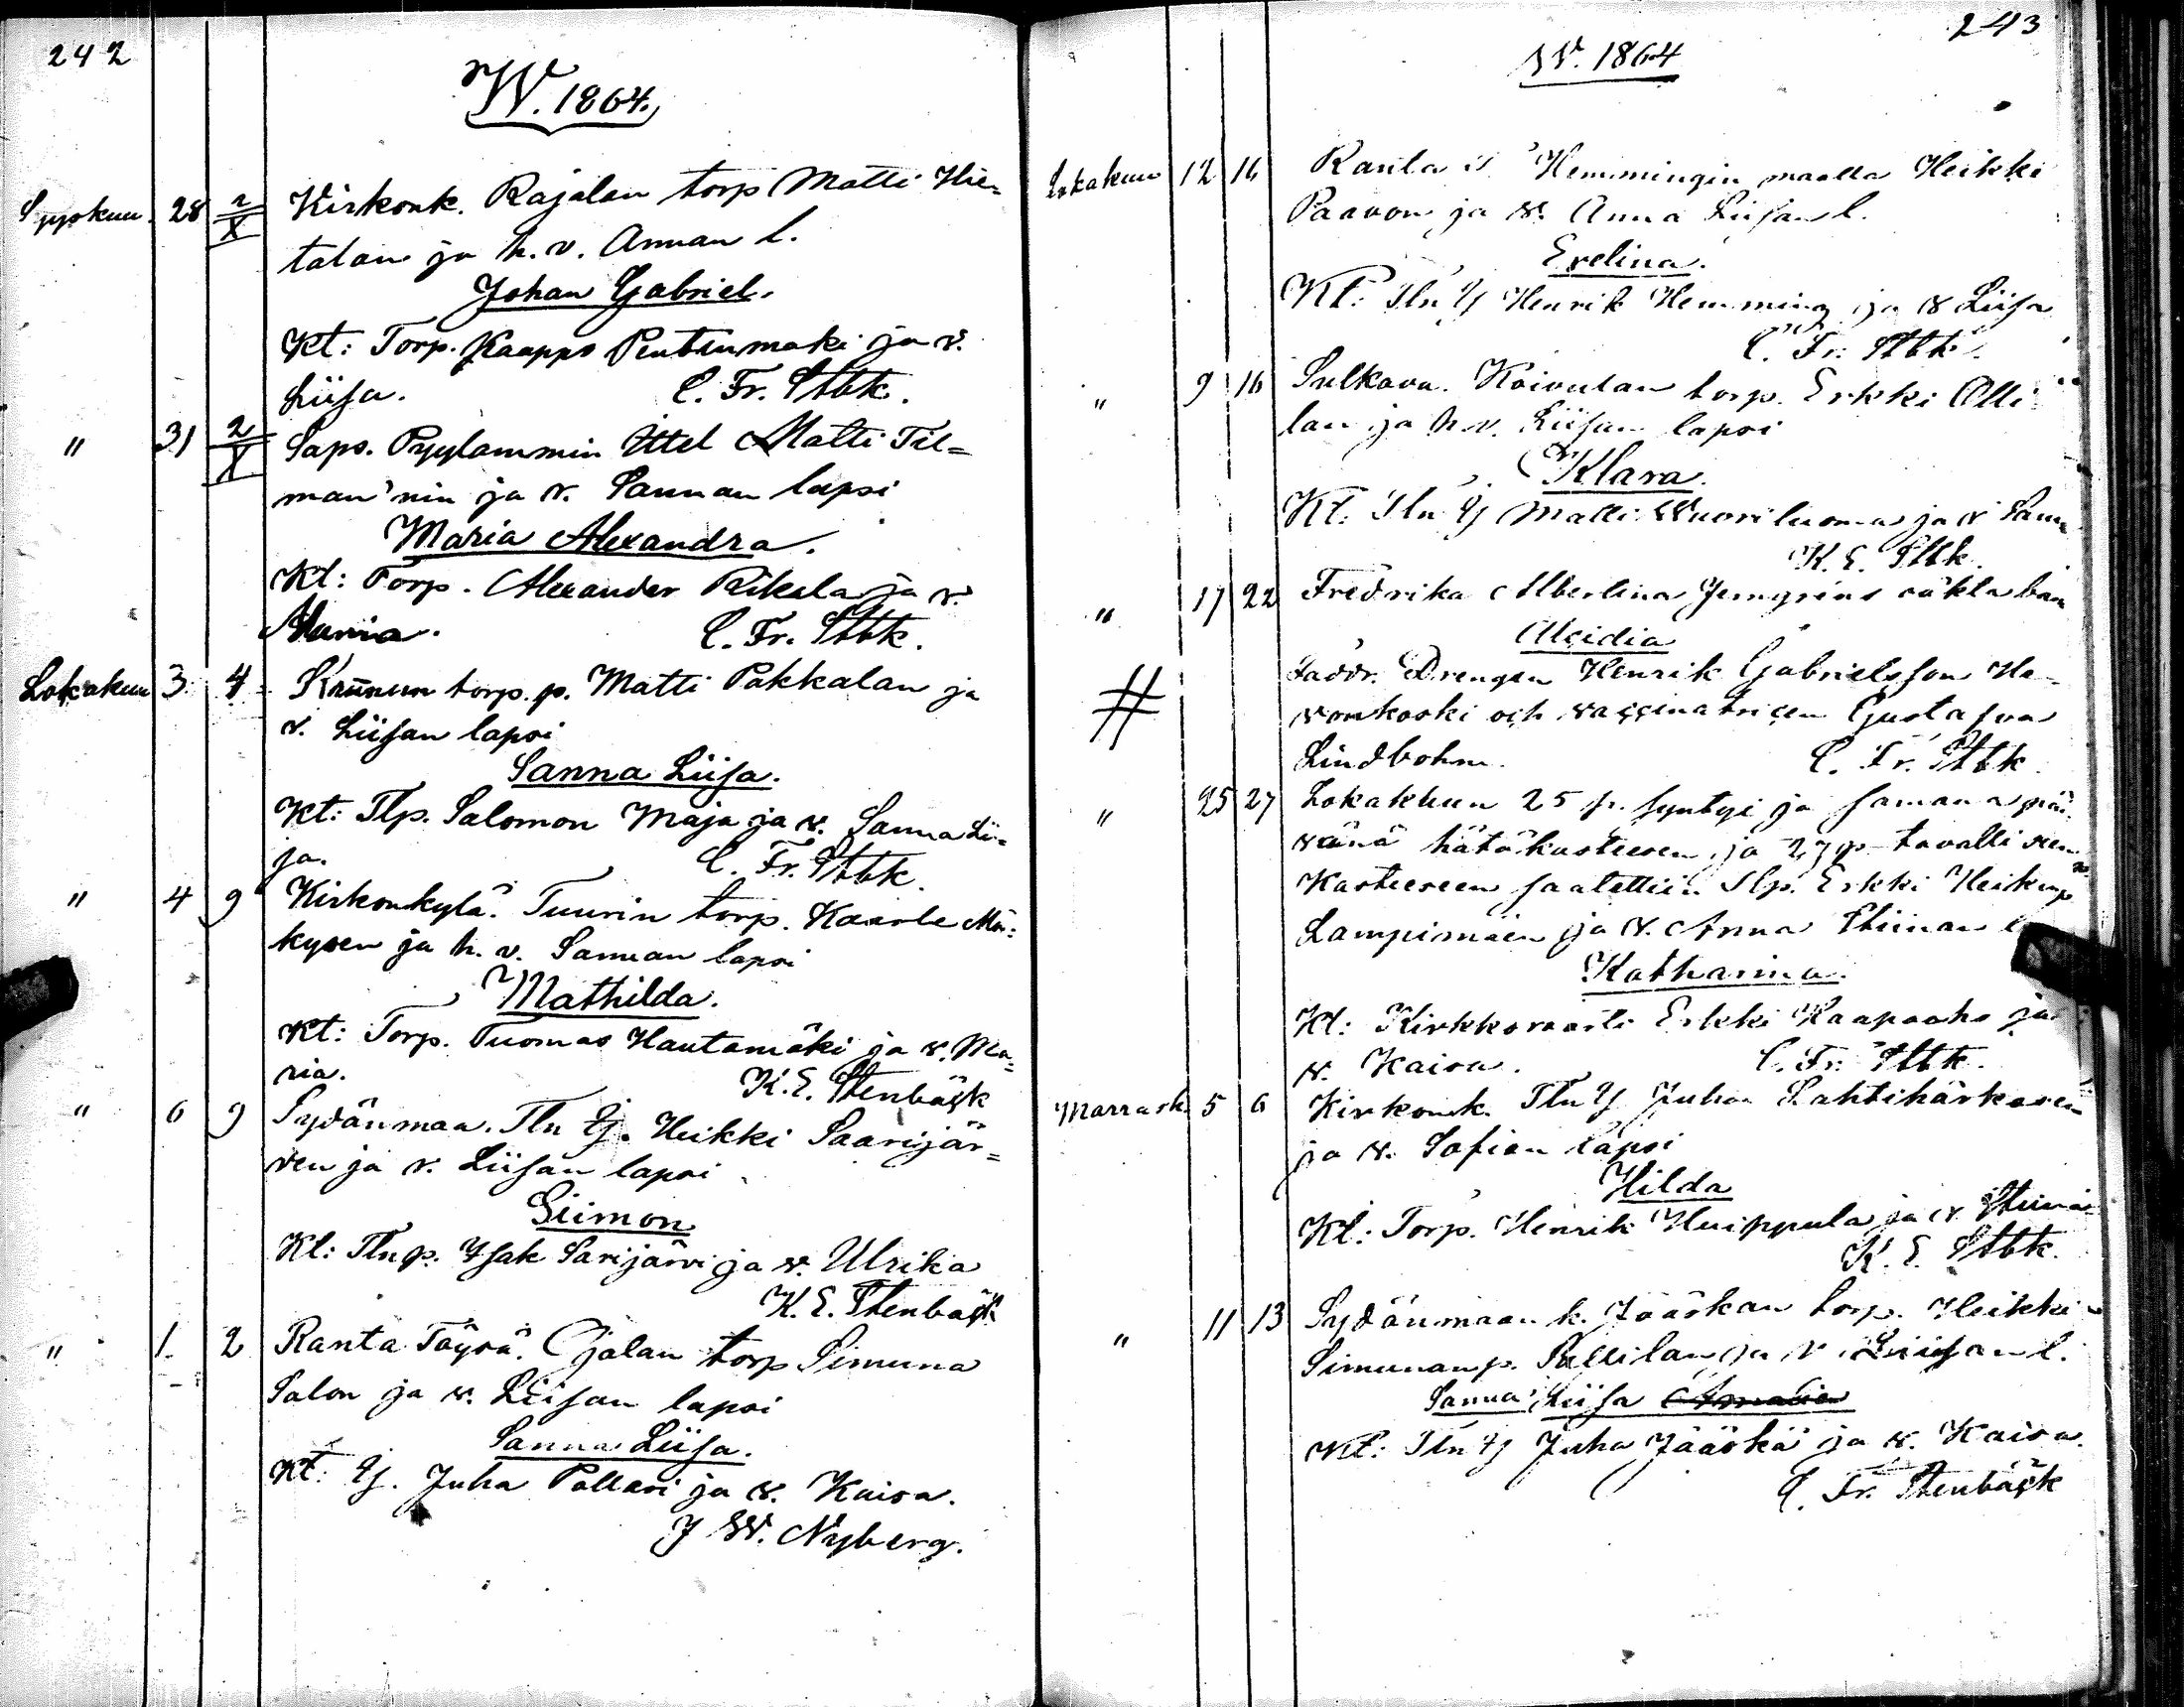 242
W. 1864.
Syyskuu. 28 2/X Kirkonk. Rajalan torp Matti Hie=
talan ja h. v. Annan l.
Johan Gabriel.
Kt: Torp. Kaappo Pentinmäki ja v.
Liisa. C. Fr. Stbk.
" 31 2/X Saps. Pyylammin Ittel Matti Til=
man'nin ja v. Sannan lapsi
Maria Alexandra.
Kt: Torp. Alexander Rikala ja v.
Maria. C. Fr. Stbk.
Lokakuu 3 4 Krunun torp. p. Matti Pakkalan ja
v. Liisan lapsi
Sanna Liisa.
Kt: Tlp. Salomon Maja ja v. Sanna Lii=
sa. C. Fr. Stbk.
" 4 9 Kirkonkylä. Tuurin torp. Kaarle Mä=
kysen ja h. v. Sannan lapsi
Mathilda.
Kt: Torp. Tuomas Hautamäki ja v. Ma=
ria. K. E. Stenbäck
" 6 9 Sydänmaa. Tln Ij. Heikki Saarijär=
ven ja v. Liisan lapsi
Siimon
Kt: Tlnp. Isak Sarijärvi ja v. Ulrika
K. E. Stenbäck
" 1. 2 Ranta Töysä. Ojalan torp Simuna
Salon ja v. Liisan lapsi
Sanna Liisa.
Kt: Ij. Juha Pollari ja v. Kaisa.
J W. Nyberg.
243
W. 1864
Lokakuu 12 16 Ranta Hemmingin maalla Heikki
Paavon ja v. Anna Liisan l.
Evelina.
Kt: Tln Ij Henrik Hemming ja v Liisa
C. Fr. Stbk.
" 9 16 Sulkava. Koivulan torp. Erkki Olli
lan ja h. v. Liisan lapsi
Klara.
Kt: Tln Ij Matti Wuoriluoma ja v Sann
K. E. Stbk.
" 17 22 Fredrika Albertina Jerngrens oäkta barn
Alcidia
# Faddr. Drengen Henrik Gabrielsson Ha
vonkoski och vaccinatricen Gustafva
Lindbohm. C. Fr. Stbk
" 25 27 Lokakuun 25 p. syntyi ja samana päi
vänä hätäkasteesen, ja 27 p. tavalliseen
Kasteeseen saatettiin Tlp. Erkki Heikinp
Lampimäen ja v. Anna Stiinan l
Katharina.
Kt: Kirkkovaarti Erkki Haapaaho ja
v. Kaisa. C. Fr. Stbk.
Marrask. 5 6 Kirkonk. Tln Ij Juha Lahtihärkösen
ja v. Sofian lapsi
Hilda
Kt: Torp. Henrik Huippula ja v. Stiina
K. E. Stbk.
" 11 13 Sydänmaan k. Jääskän torp. Heikki
Simunanp. Pellilan ja v. Liisan l.
Sanna Liisa Amalia
Kt: Tln Ij Juha Jääskä ja v. Kaisa.
C. Fr. Stenbäck